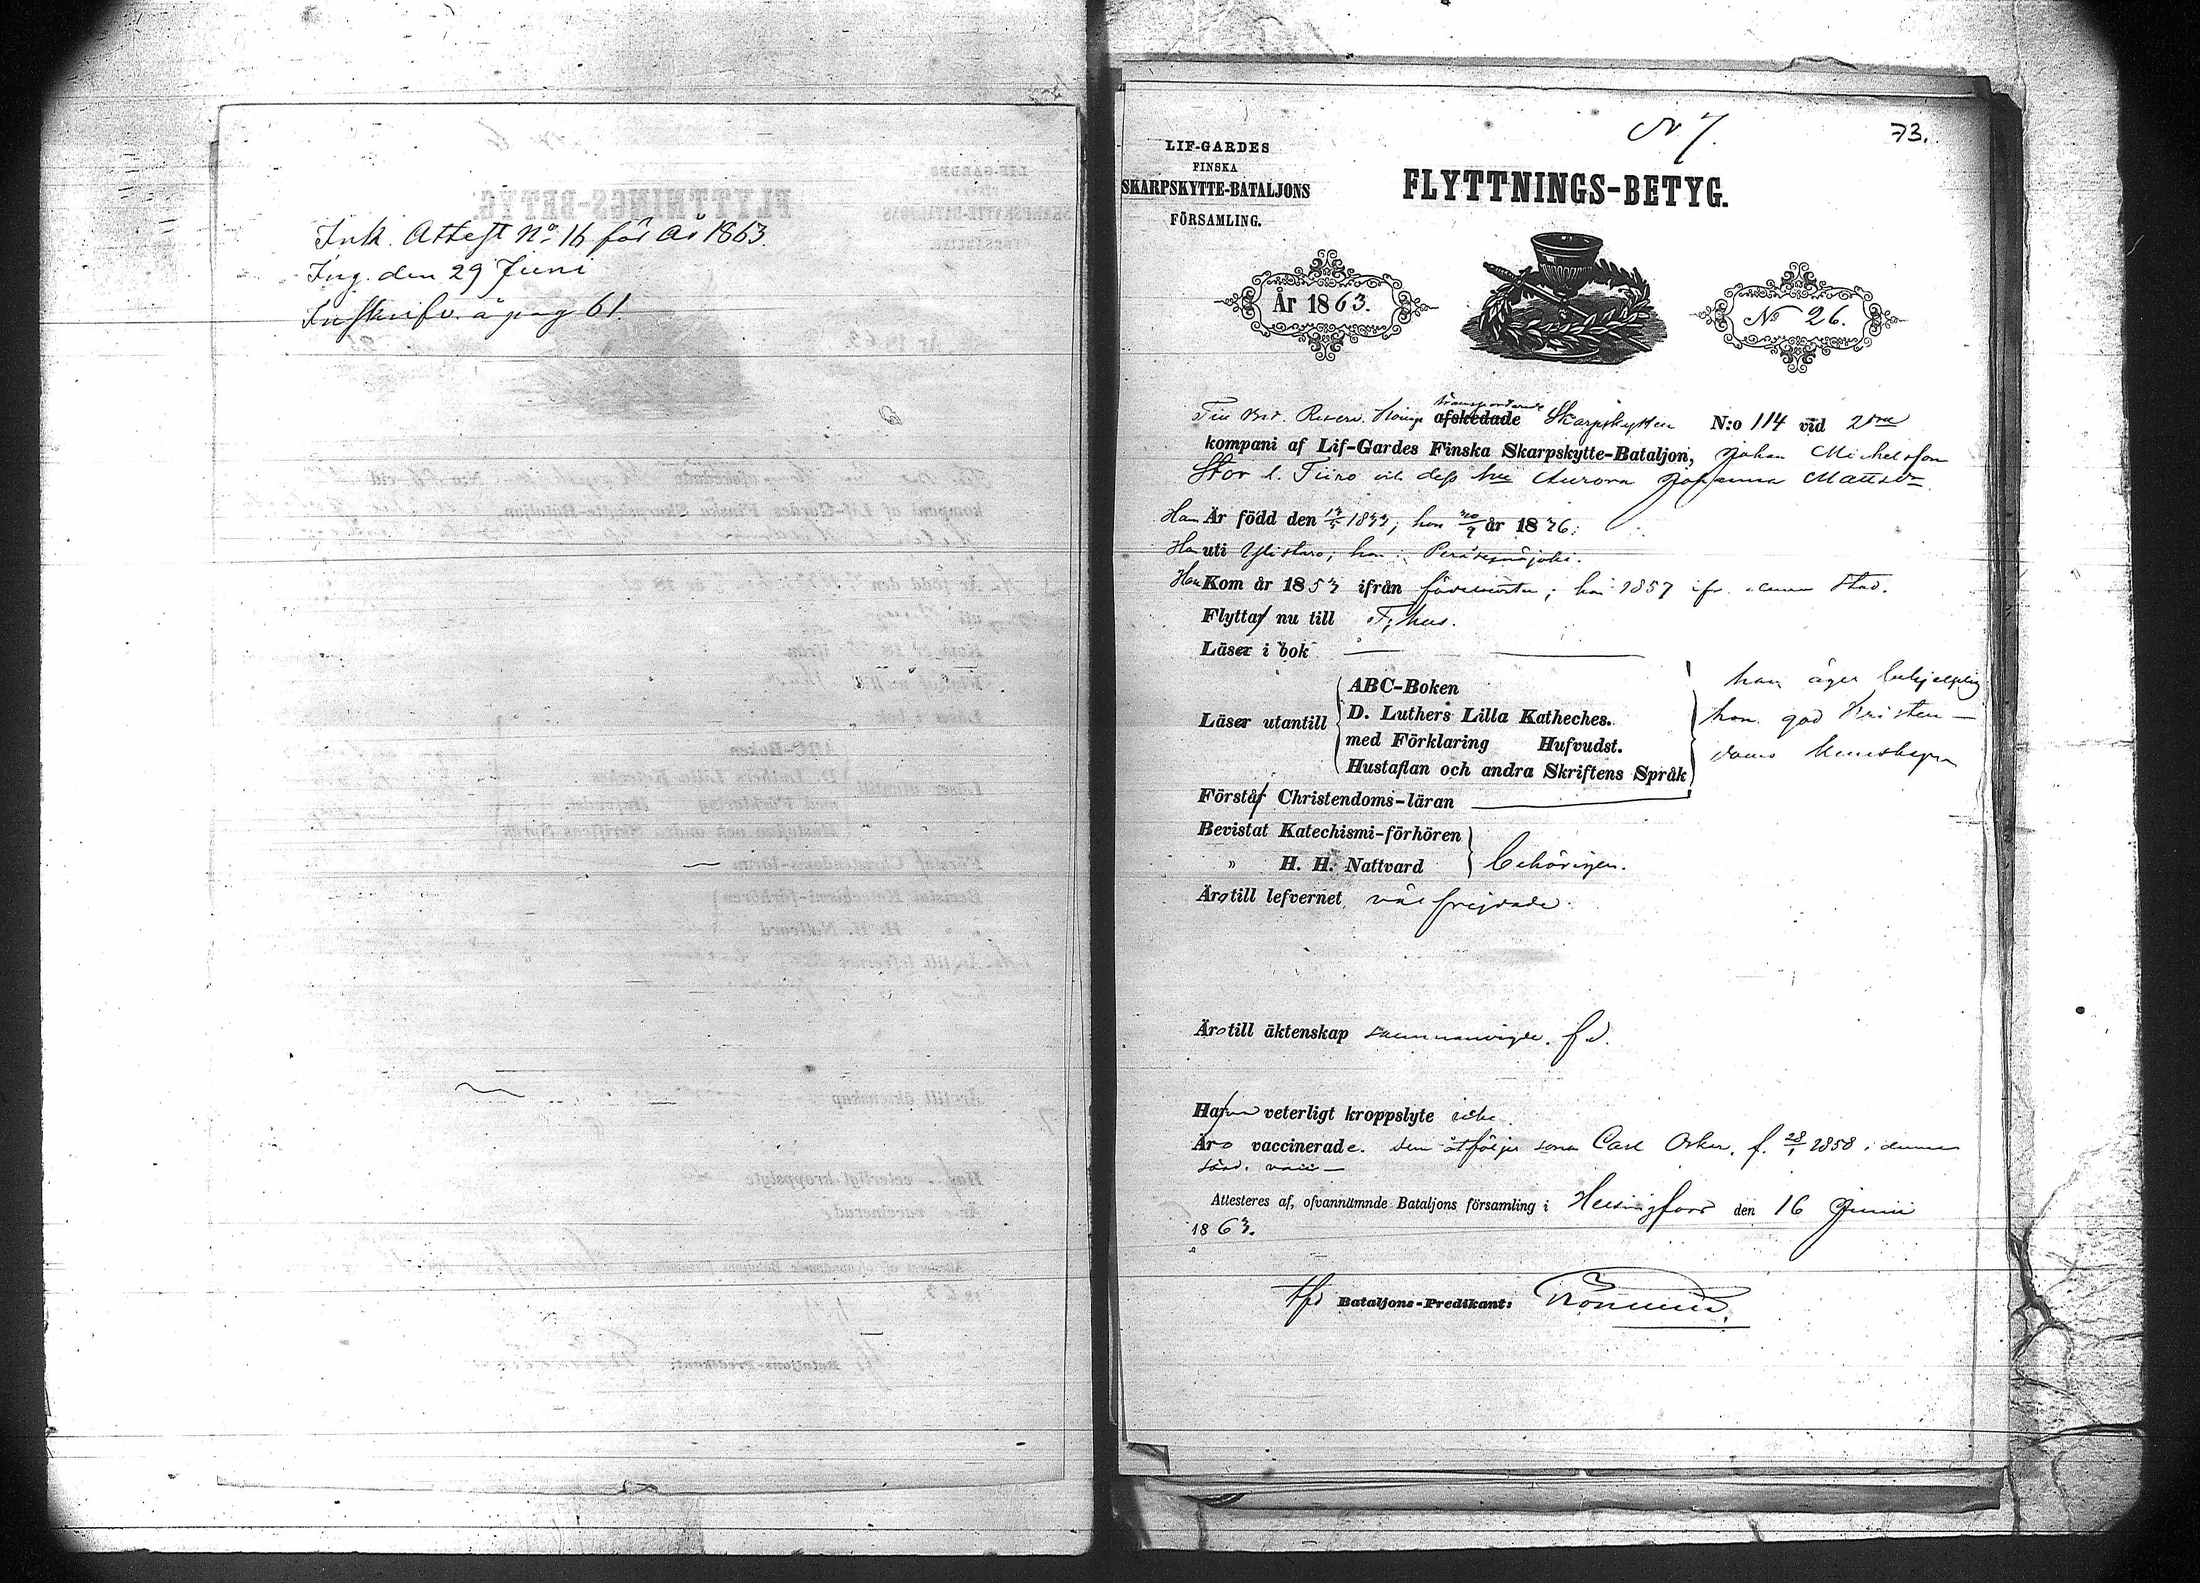 Ink. Attest No 16 för år 1863.
Ing. den 29 Juni
Inskrifv. å pag 61.
No 7.
73.
LIF-GARDES
FINSKA
SKARPSKYTTE-BATALJONS
FÖRSAMLING.
FLYTTNINGS-BETYG.
År 1863.
No 26.
transporterade
Till afskedade Skarpskytten N:o 114 vid 2dra
kompani af Lif-Gardes Finska Skarpskytte-Bataljon, Johan Michelsson
Stor l. Tiiro och dess hu Aurora Johanna Mattsdr
Han Är född den 1833; hon år 1836:
Han uti Ylistaro; hon: Peräseinäjoki.
Han Kom år 1853 ifrån födelseorten; hon 1857 ifr. denna stad.
Flytta nu till
Läser i bok
ABC-Boken
Läser utantill D. Luthers Lilla Katheches.
med Förklaring Hufvudst.
Hustaflan och andra Skriftens Språk
han äger behjelplig
hon god Kristen-
doms kunskap
Förstå Christendoms-läran
Bevistat Katechismi-förhören
" H. H. Nattvard behörigen.
Äro till lefvernet väl frejdade.
Äro till äktenskap sammanvigde.
Hafva veterligt kroppslyte icke.
Äro vaccinerade. Dem åtföljer sonen Carl Oskar, f. 28/1 1858 i denna
stad. vacc.
Attesteres af, ofvannämnde Bataljons församling i Helsingfors den 16 Junii
1863.
Bataljons-Predikant: